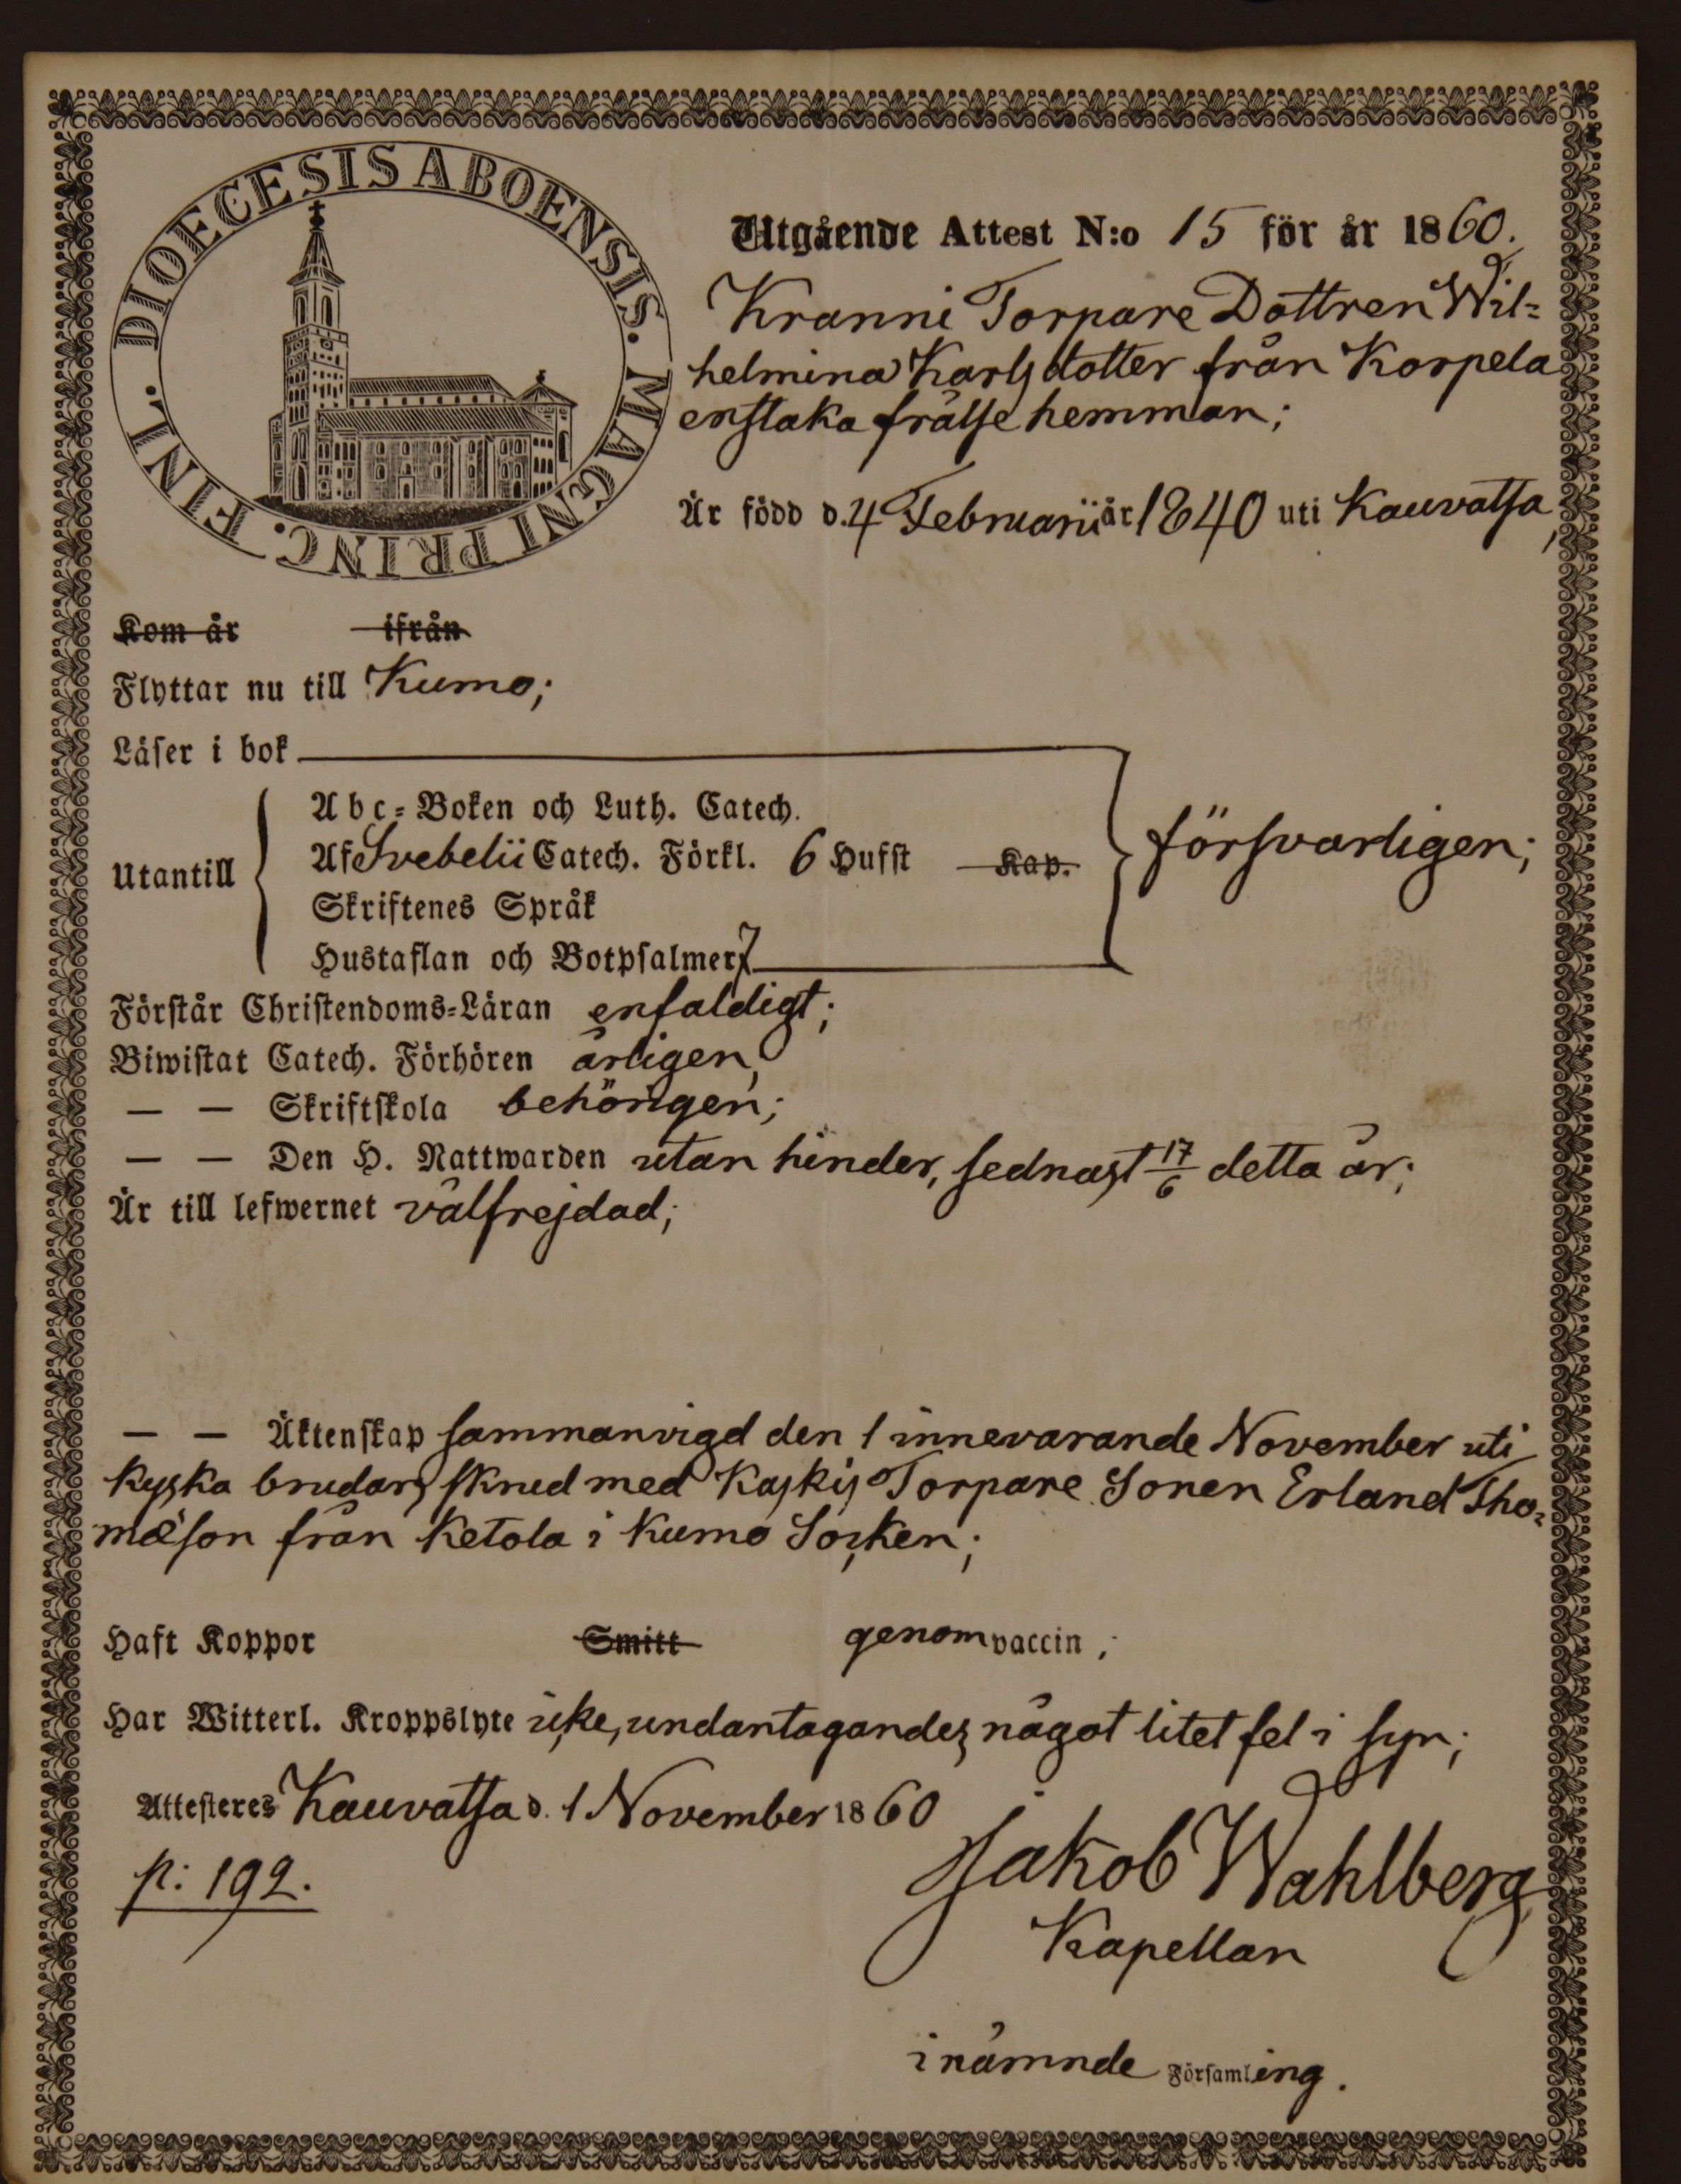 DIOECESIS ABOENSIS. MAGNI PRINC. FINL.
Utgående Attest N:o 15 för år 1860.
Kranni Torpare Dottren Wil=
helmina Karlsdotter från Korpela
enstaka frälse hemman;
Är född d. 4 Februarii år 1840 uti Kauvatsa,
Kom år ifrån
Flyttar nu till Kumo;
Läser i bok
Abc=Boken och Luth. Catech.
Utantill
Af Svebelii Catech. Förkl. 6 Hufst Kap.
försvarligen;
Skriftenes Språk
Hustaflan och Botpsalmer 7
Förstår Christendoms=Läran enfaldigt;
Biwistat Catech. Förhören årligen,
— — Skriftskola behörigen;
— — Den H. Nattwarden utan hinder, sednast 17/6 detta år;
Är till lefwernet välfrejdad;
— — Äktenskap sammanvigd den 1 innevarande November uti
kyska brudars skrud med Kaskis Torpare Sonen Erland Tho=
mæson från Ketola i Kumo Socken;
Haft Koppor Smitt genom vaccin;
Har Witterl. Kroppslyte icke, undantagandes något litet fel i syn;
Attesteres Kauvatsa d. 1 November 1860
p: 192.
Jakob Wahlberg
Kapellan
i nämnde Församling.